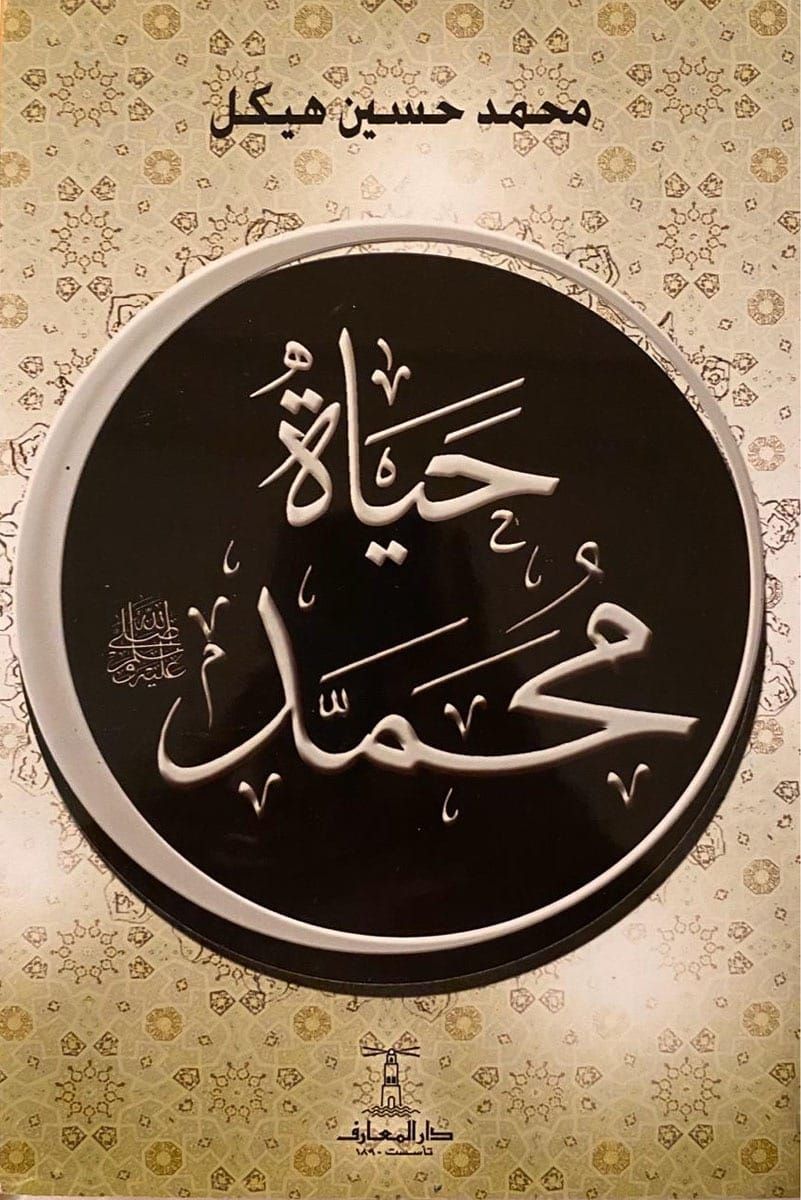 محمد حسين هيكل
حَيَاةُ
مُحَمَّد
صلى الله عليه وسلم
دار المعارف
تأسست ١٨٩٠